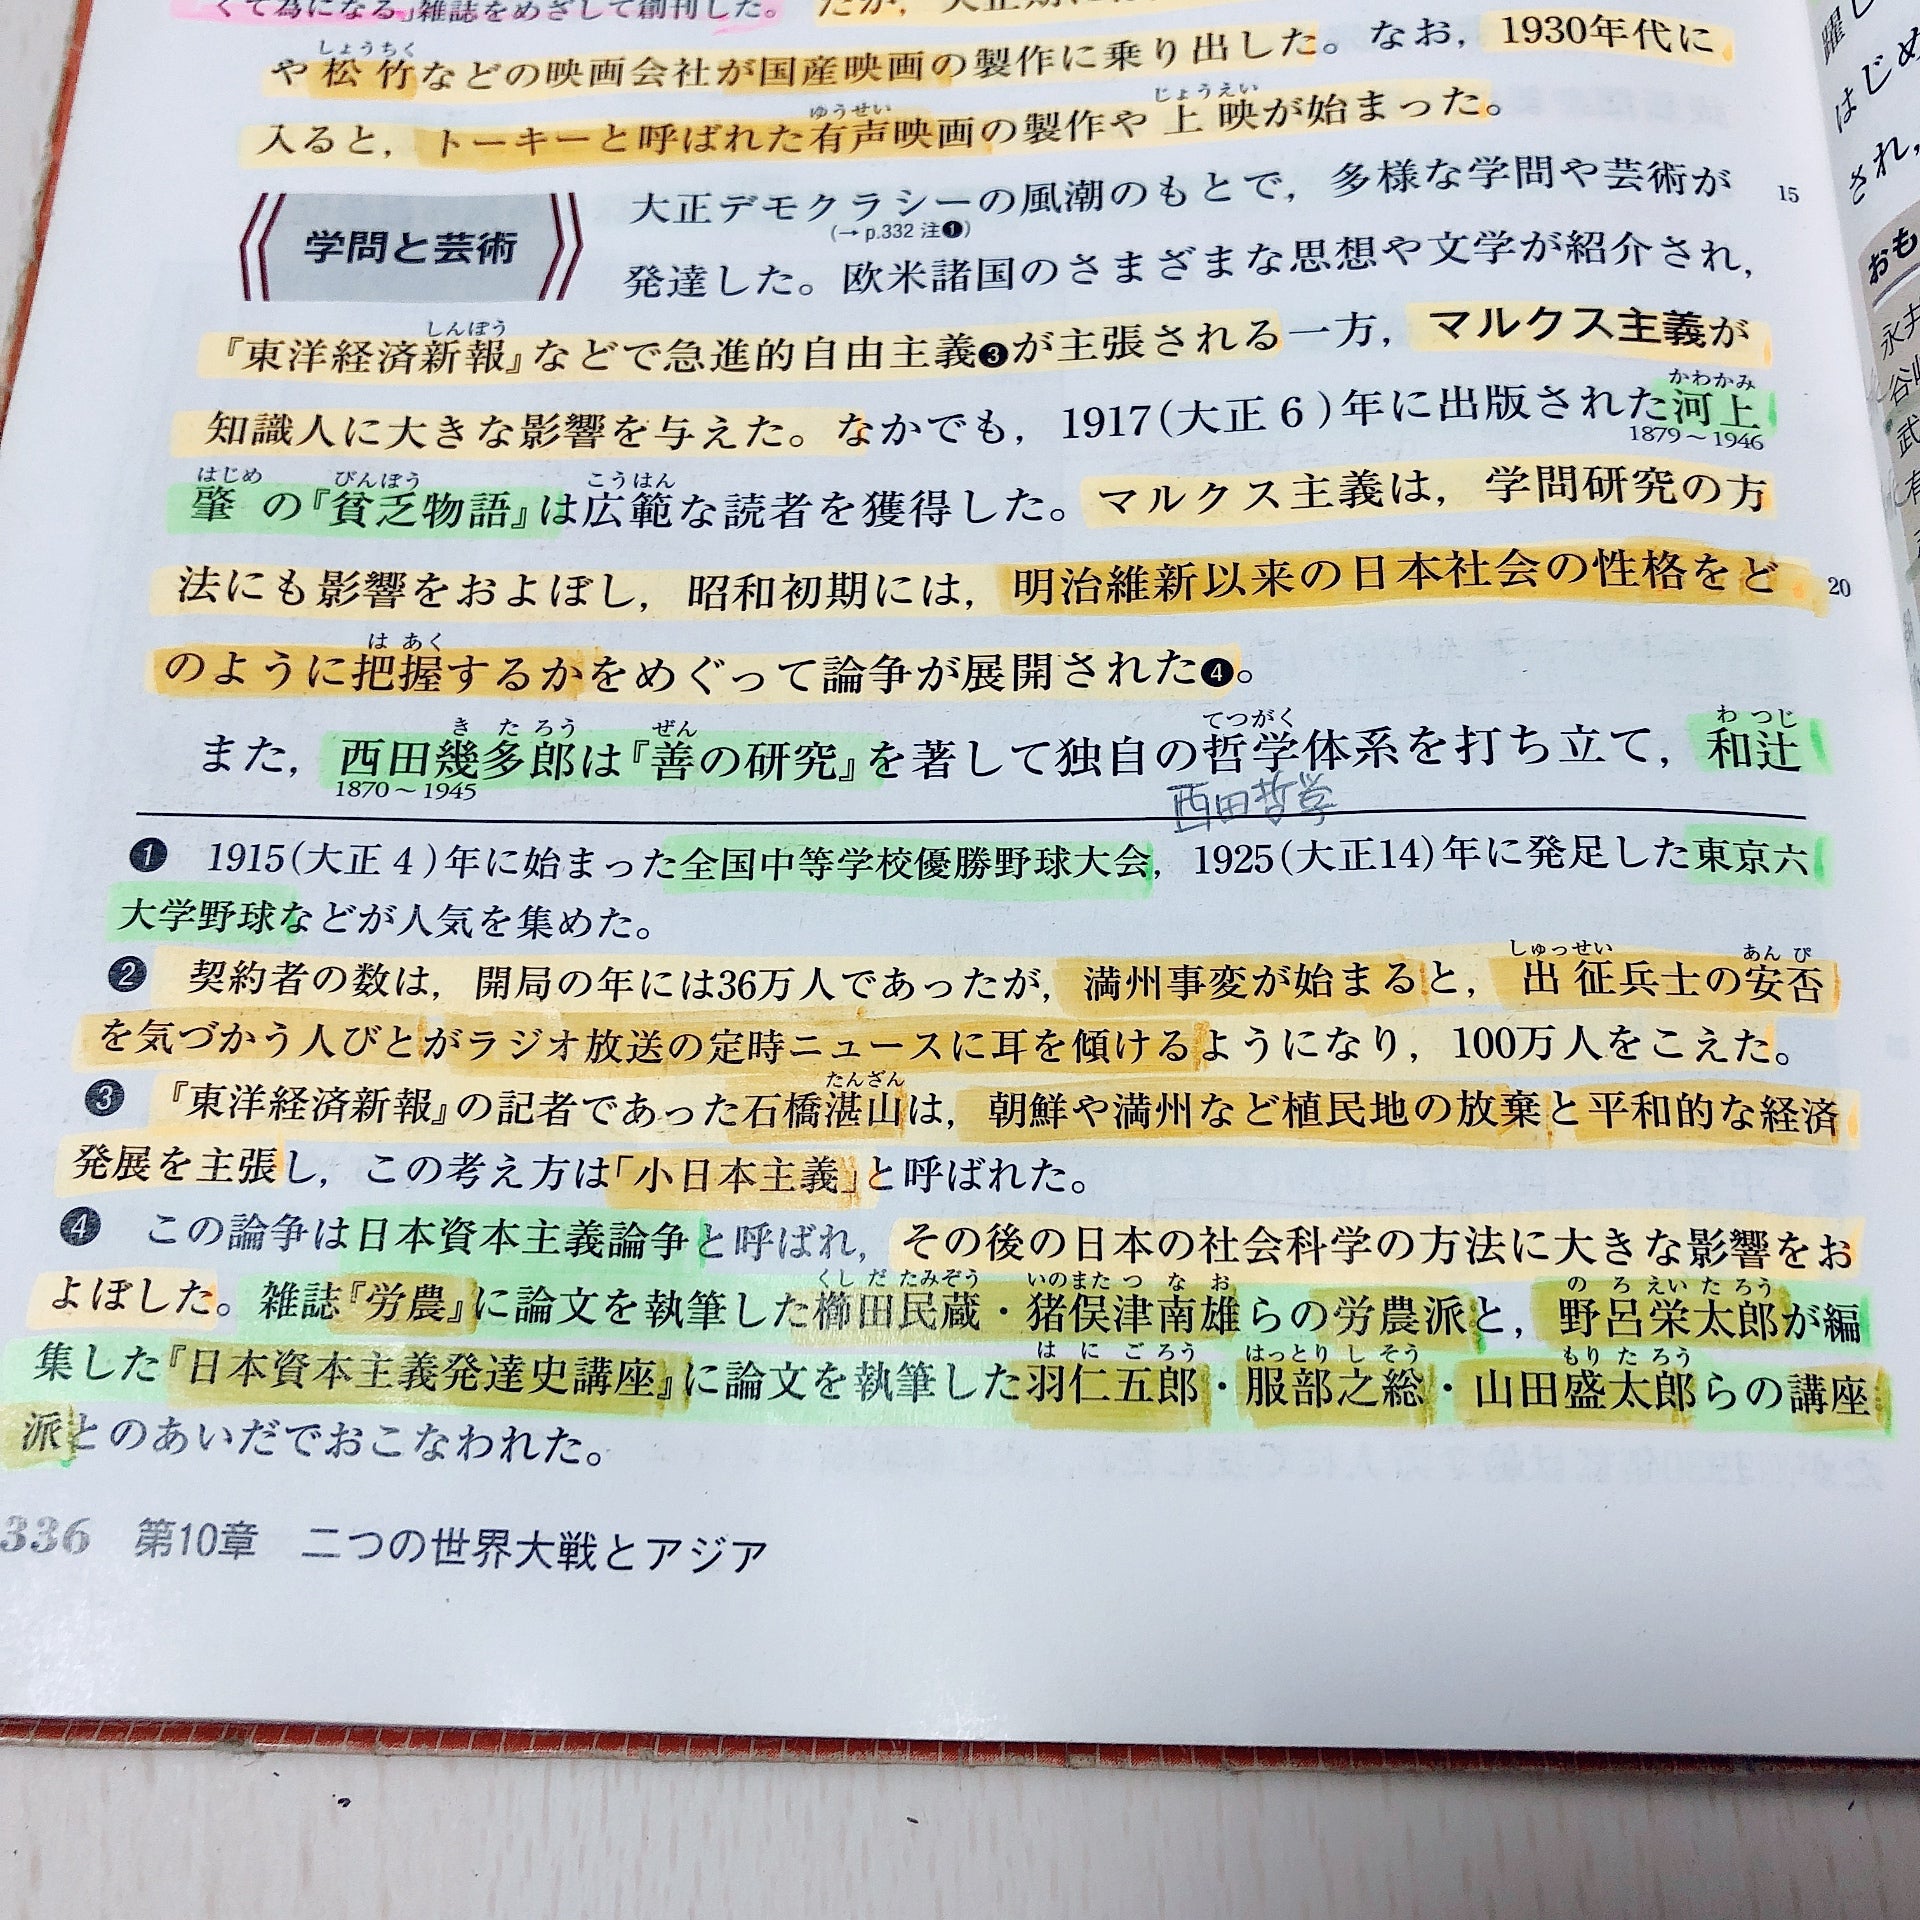 くて為になる」雑誌をめざして創刊した。
や松竹などの映画会社が国産映画の製作に乗り出した。なお，1930年代に
しょうちく
入ると，トーキーと呼ばれた有声映画の製作や上映が始まった。
ゆうせい じょうえい
学問と芸術
大正デモクラシーの風潮のもとで，多様な学問や芸術が
15
(→p.332 注❶)
発達した。欧米諸国のさまざまな思想や文学が紹介され，
しんぽう
『東洋経済新報』などで急進的自由主義❸が主張される一方，マルクス主義が
知識人に大きな影響を与えた。なかでも，1917(大正6)年に出版された河上
かわかみ
1879～1946
はじめ びんぼう こうはん
肇の『貧乏物語』は広範な読者を獲得した。マルクス主義は，学問研究の方
法にも影響をおよぼし，昭和初期には，明治維新以来の日本社会の性格をど
20
は あく
のように把握するかをめぐって論争が展開された❹。
き た ろう ぜん てつがく わ つじ
また，西田幾多郎は『善の研究』を著して独自の哲学体系を打ち立て，和辻
1870～1945
西田哲学
❶ 1915(大正4)年に始まった全国中等学校優勝野球大会，1925(大正14)年に発足した東京六
大学野球などが人気を集めた。
しゅっせい あん ぴ
❷ 契約者の数は，開局の年には36万人であったが，満州事変が始まると，出征兵士の安否
を気づかう人びとがラジオ放送の定時ニュースに耳を傾けるようになり，100万人をこえた。
たんざん
❸ 『東洋経済新報』の記者であった石橋湛山は，朝鮮や満州など植民地の放棄と平和的な経済
発展を主張し，この考え方は「小日本主義」と呼ばれた。
❹ この論争は日本資本主義論争と呼ばれ，その後の日本の社会科学の方法に大きな影響をお
くし だ たみぞう いのまた つ な お の ろ えい た ろう
よぼした。雑誌『労農』に論文を執筆した櫛田民蔵・猪俣津南雄らの労農派と，野呂栄太郎が編
は に ご ろう はっとり し そう もり た ろう
集した『日本資本主義発達史講座』に論文を執筆した羽仁五郎・服部之総・山田盛太郎らの講座
派とのあいだでおこなわれた。
336 第10章 二つの世界大戦とアジア
はじめ
され，
おも
永井